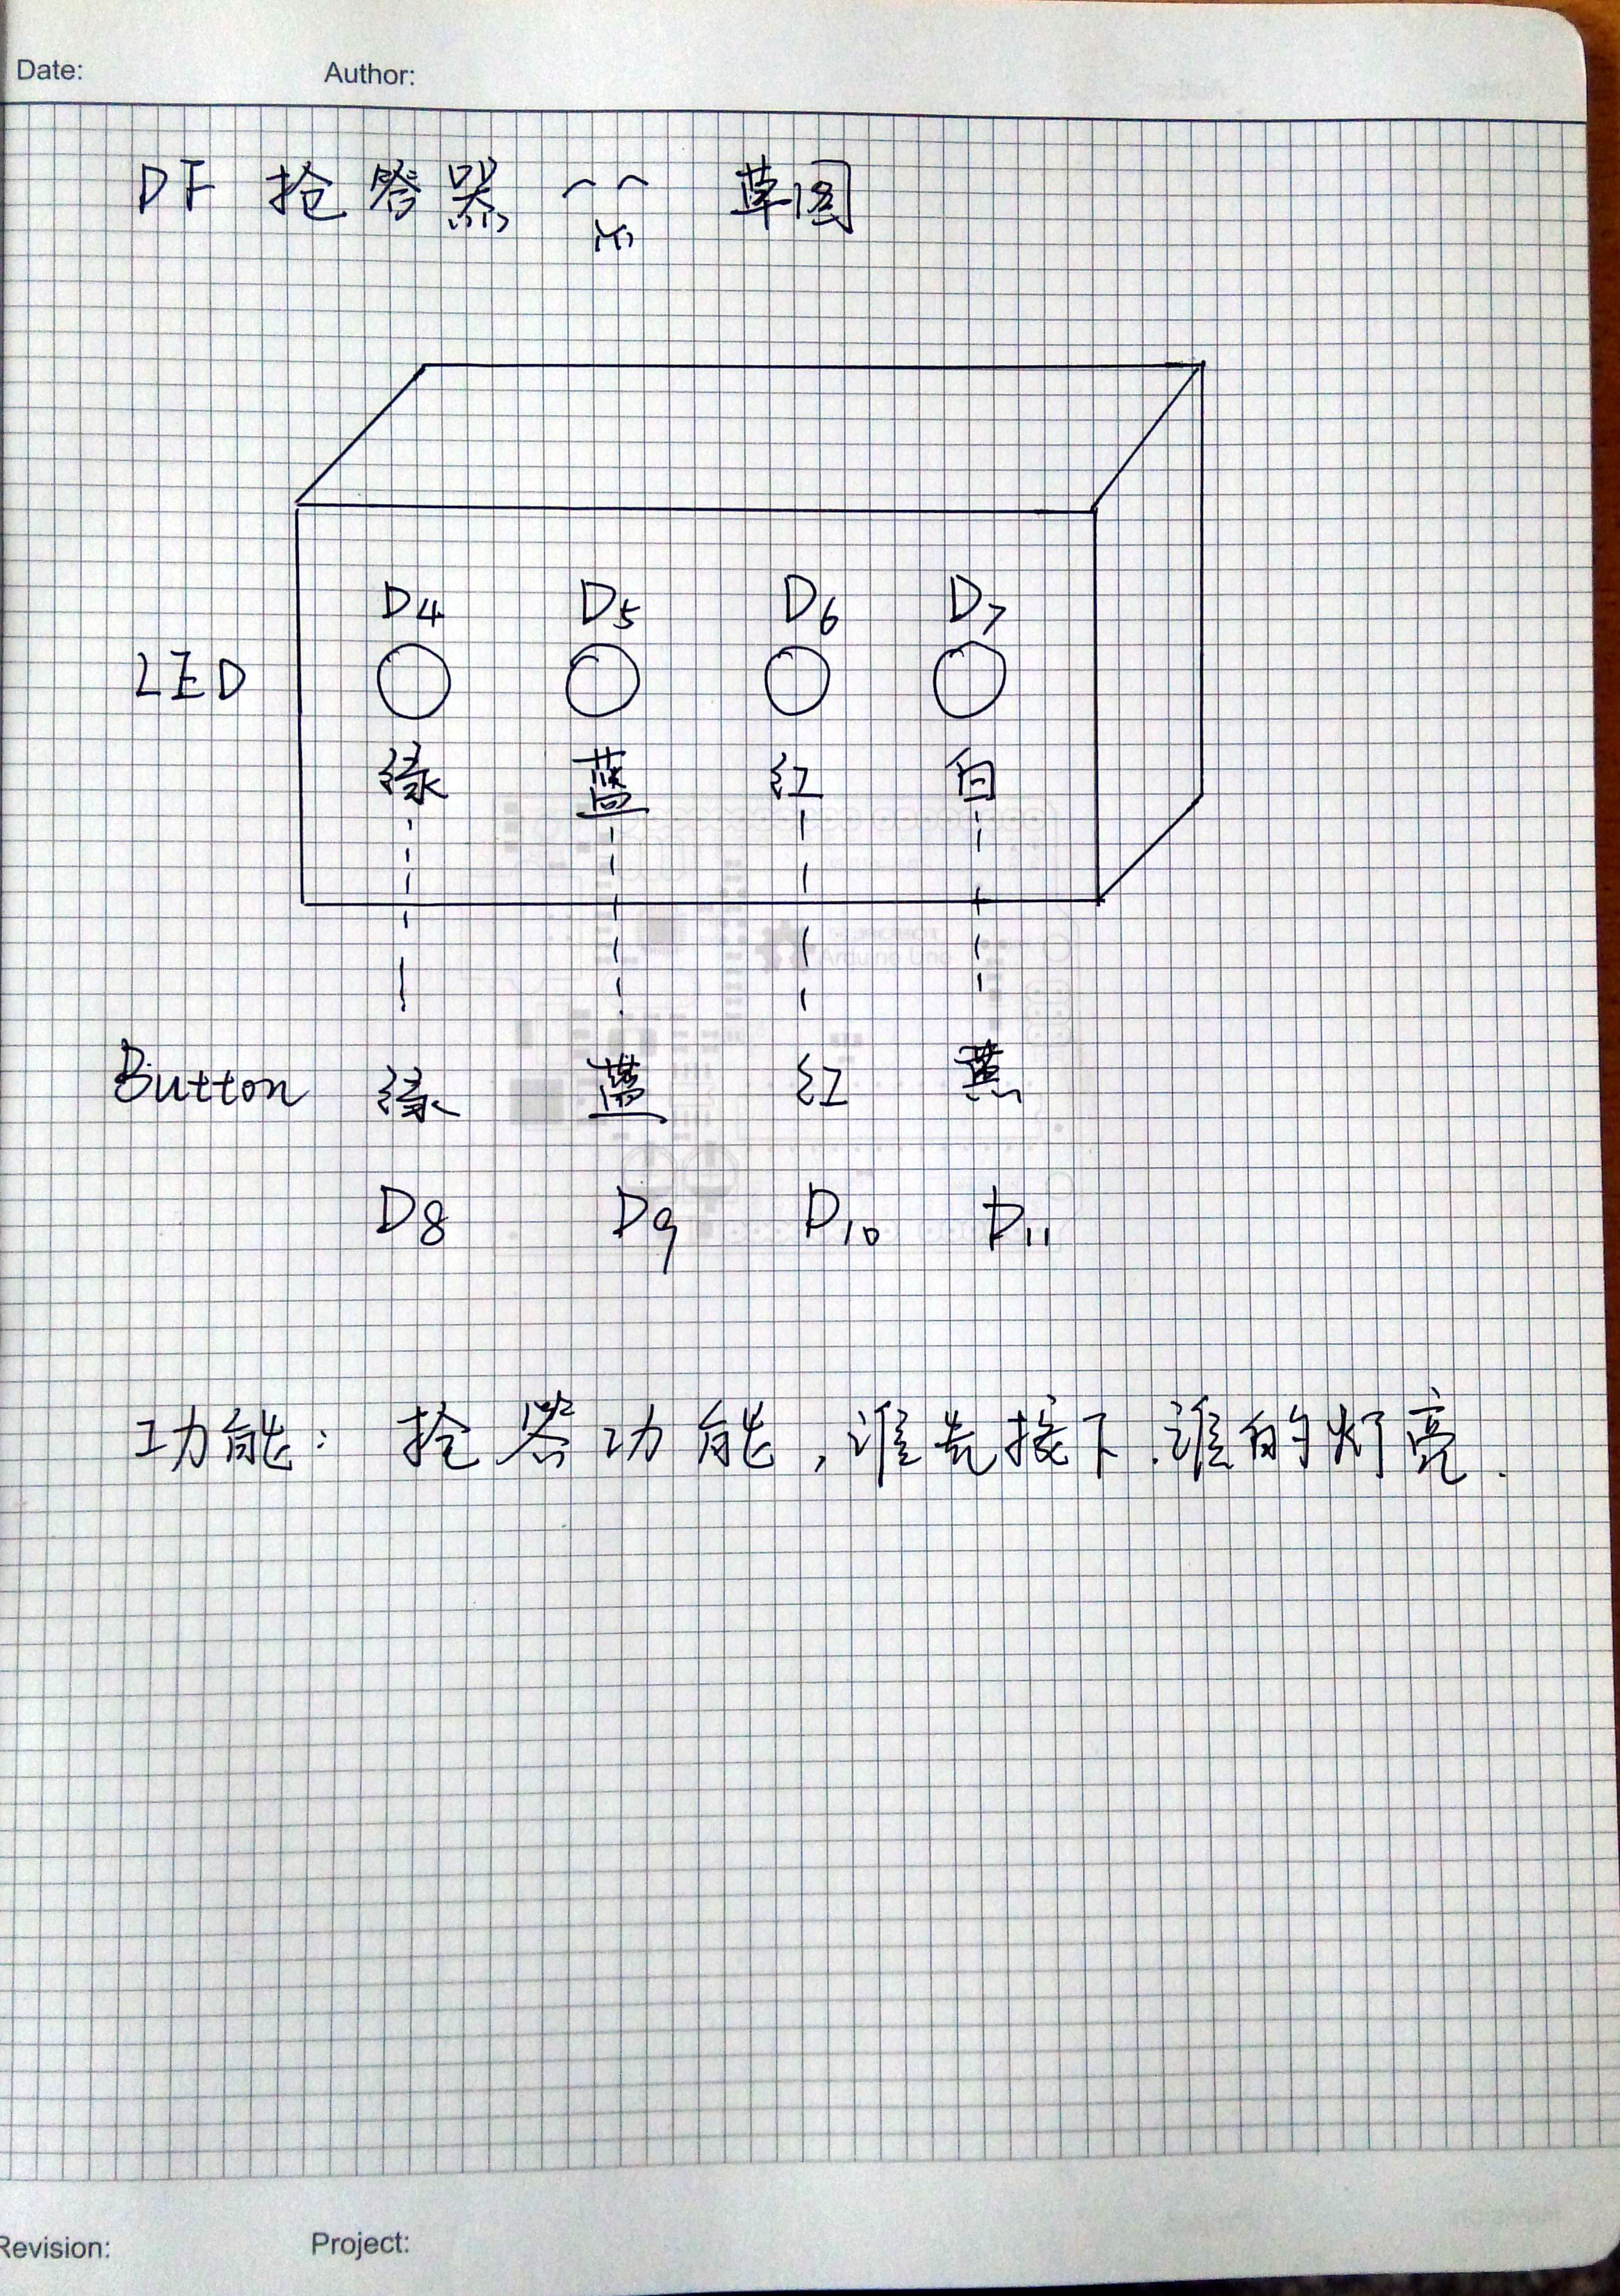 Date: Author:
DF 抢答器 草图
D4 D5 D6 D7
LED
绿 蓝 红 白
Arduino Uno
Button 绿 蓝 红 黄
D8 D9 D10 D11
功能: 抢答功能,谁先按下.谁的灯亮.
Revision: Project: